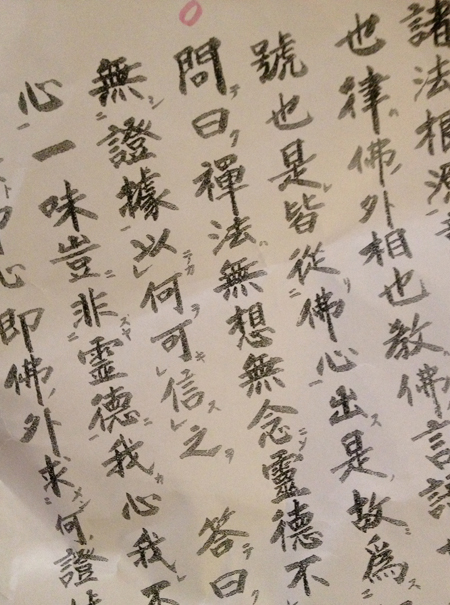 諸法根源
也律佛外相也教佛言語
號也是皆從佛心出是故爲
問曰禪法無想無念靈德不
無證據以何可信之 答曰
心一味豈非靈德我心我不
心即佛外來何證